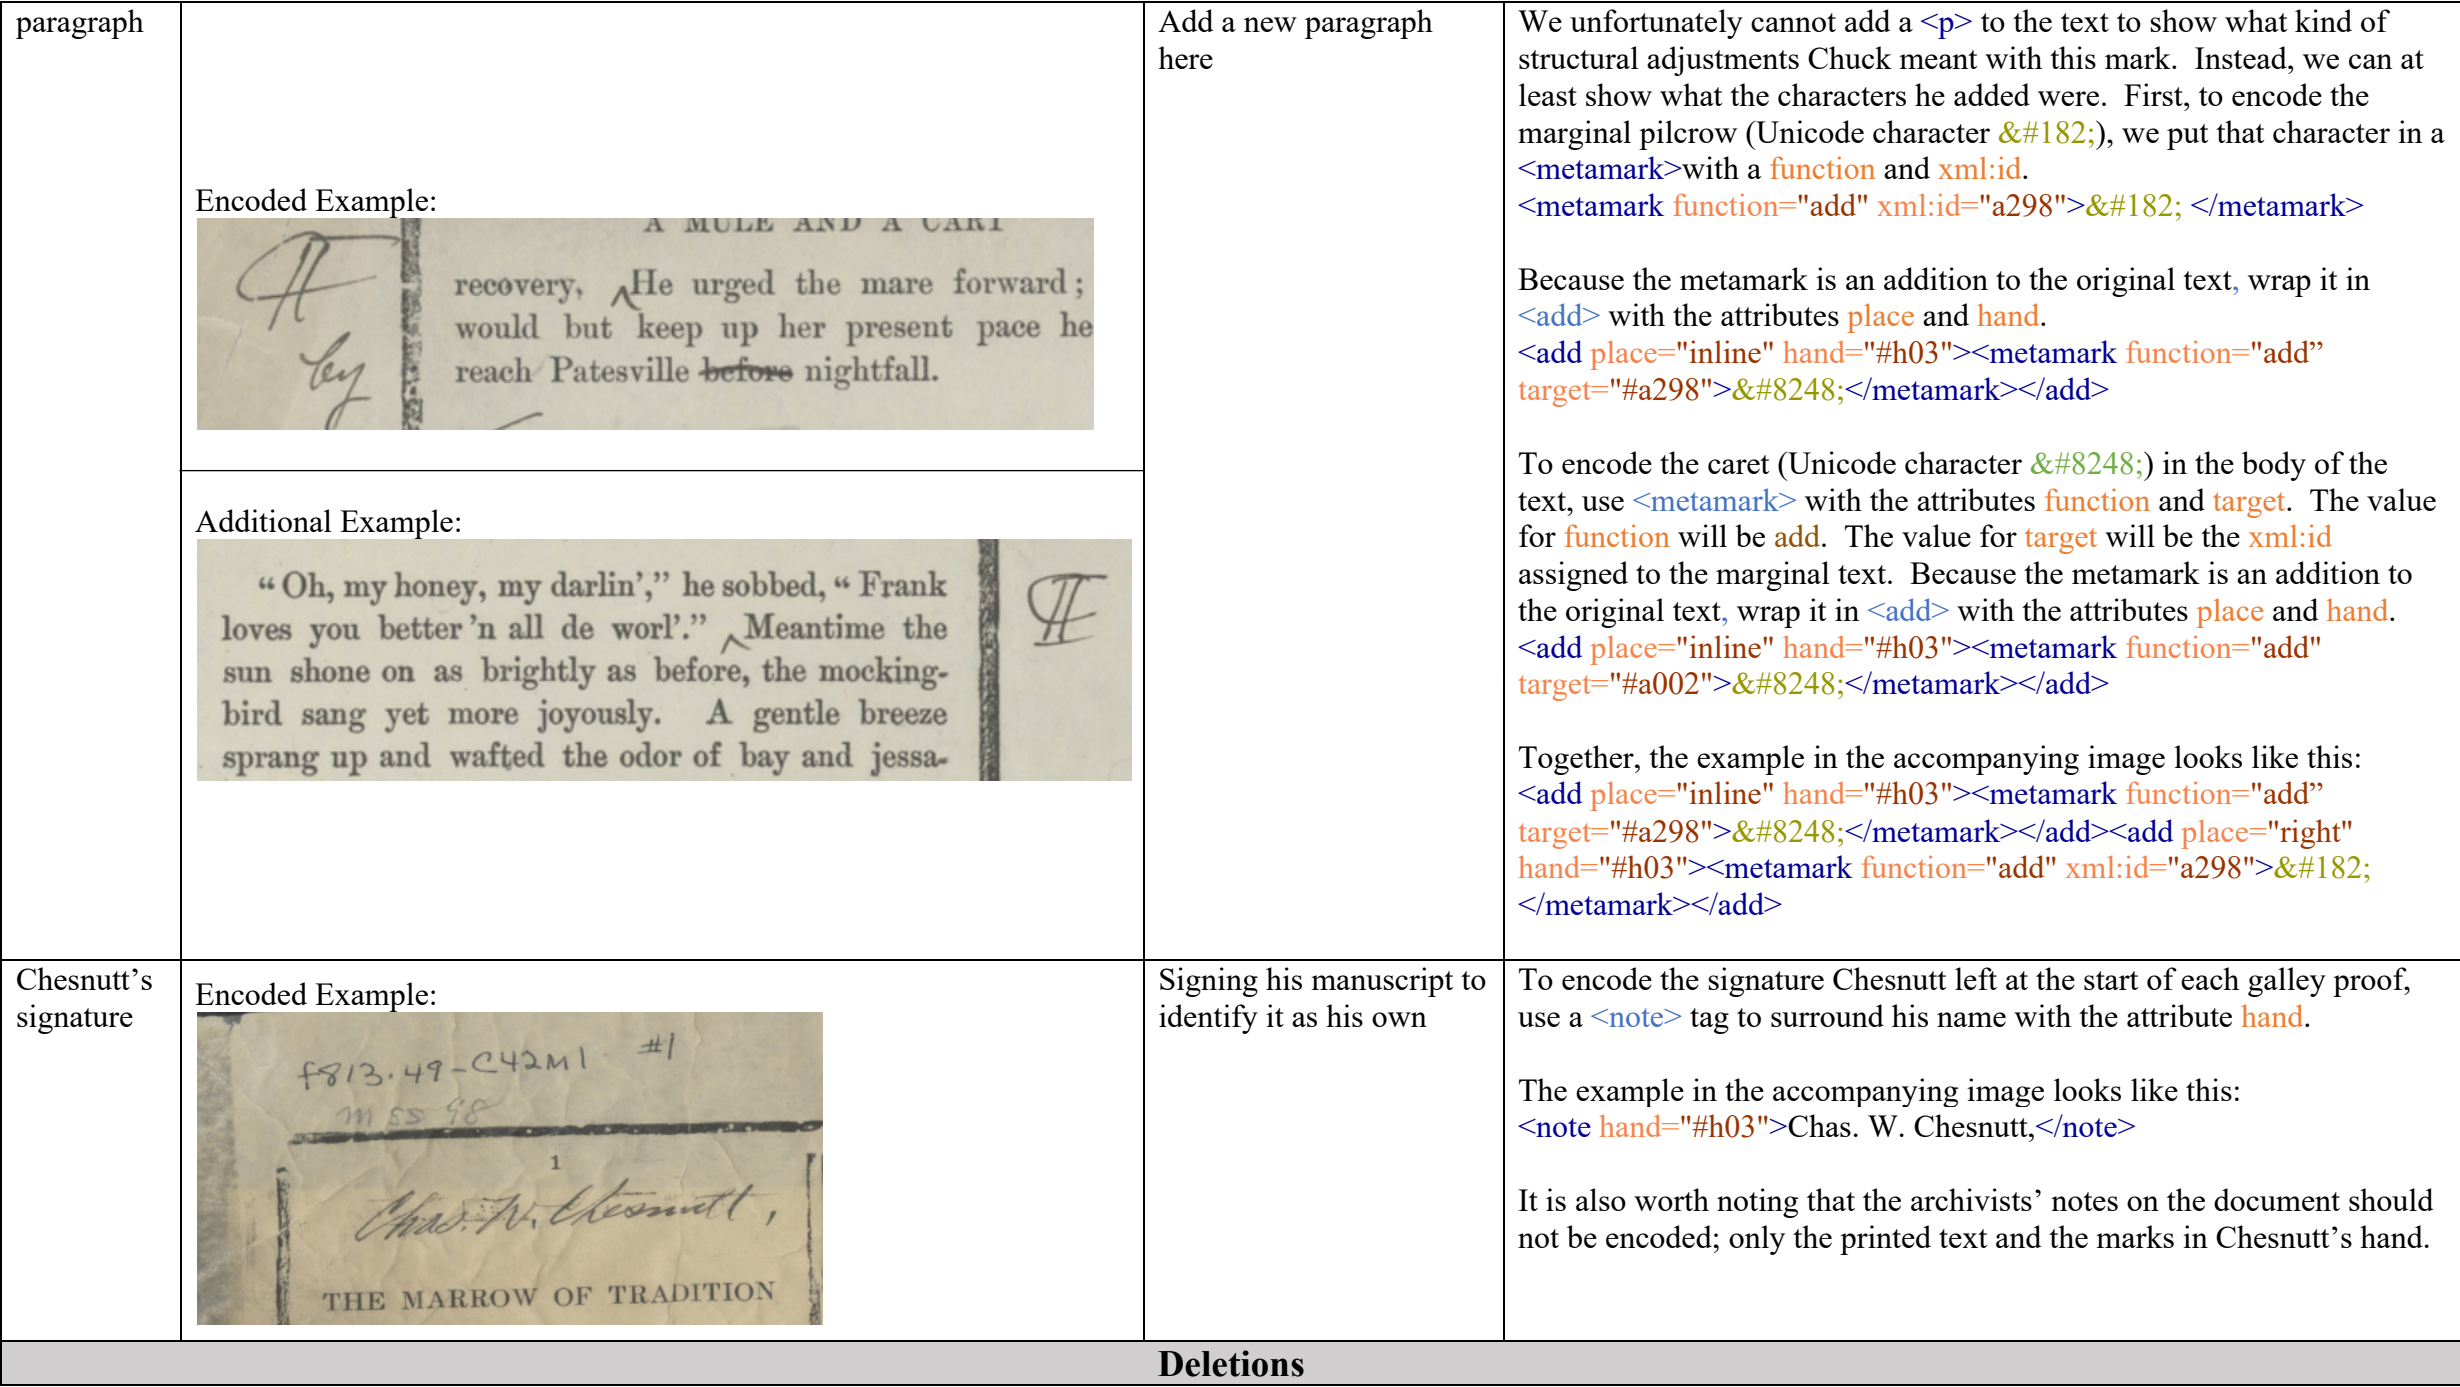 paragraph
Encoded Example:
A MULE AND A CART
¶
recovery, ‸He urged the mare forward;
would but keep up her present pace he
by
reach Patesville before nightfall.
Additional Example:
“ Oh, my honey, my darlin’,” he sobbed, “ Frank
loves you better ’n all de worl’.” ‸Meantime the
¶
sun shone on as brightly as before, the mocking-
bird sang yet more joyously. A gentle breeze
sprang up and wafted the odor of bay and jessa-
Add a new paragraph
here
We unfortunately cannot add a <p> to the text to show what kind of
structural adjustments Chuck meant with this mark. Instead, we can at
least show what the characters he added were. First, to encode the
marginal pilcrow (Unicode character &#182;), we put that character in a
<metamark>with a function and xml:id.
<metamark function="add" xml:id="a298">&#182; </metamark>
Because the metamark is an addition to the original text, wrap it in
<add> with the attributes place and hand.
<add place="inline" hand="#h03"><metamark function="add”
target="#a298">&#8248;</metamark></add>
To encode the caret (Unicode character &#8248;) in the body of the
text, use <metamark> with the attributes function and target. The value
for function will be add. The value for target will be the xml:id
assigned to the marginal text. Because the metamark is an addition to
the original text, wrap it in <add> with the attributes place and hand.
<add place="inline" hand="#h03"><metamark function="add"
target="#a002">&#8248;</metamark></add>
Together, the example in the accompanying image looks like this:
<add place="inline" hand="#h03"><metamark function="add”
target="#a298">&#8248;</metamark></add><add place="right"
hand="#h03"><metamark function="add" xml:id="a298">&#182;
</metamark></add>
Chesnutt’s
signature
Encoded Example:
f813.49-C42M1 #1
mss 98
1
Chas. W. Chesnutt,
THE MARROW OF TRADITION
Signing his manuscript to
identify it as his own
To encode the signature Chesnutt left at the start of each galley proof,
use a <note> tag to surround his name with the attribute hand.
The example in the accompanying image looks like this:
<note hand="#h03">Chas. W. Chesnutt,</note>
It is also worth noting that the archivists’ notes on the document should
not be encoded; only the printed text and the marks in Chesnutt’s hand.
Deletions